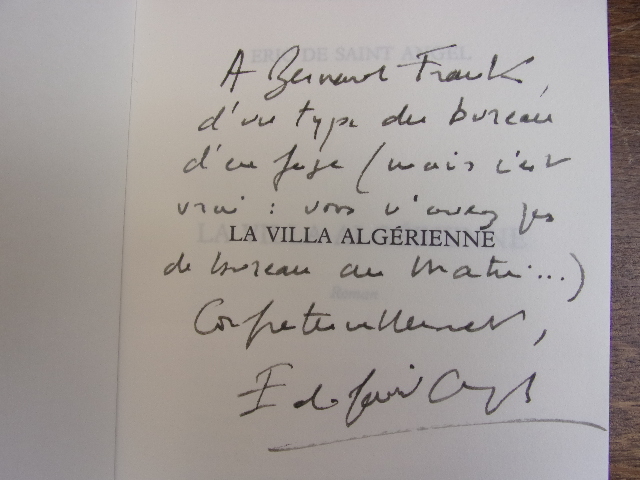 A Bernard Frank,
d'un type du bureau
d'en face (mais c'est
vrai : vous n'avez pas
LA VILLA ALGÉRIENNE
de bureau au Matin...)
Confraternellement,
E de Saint Angel